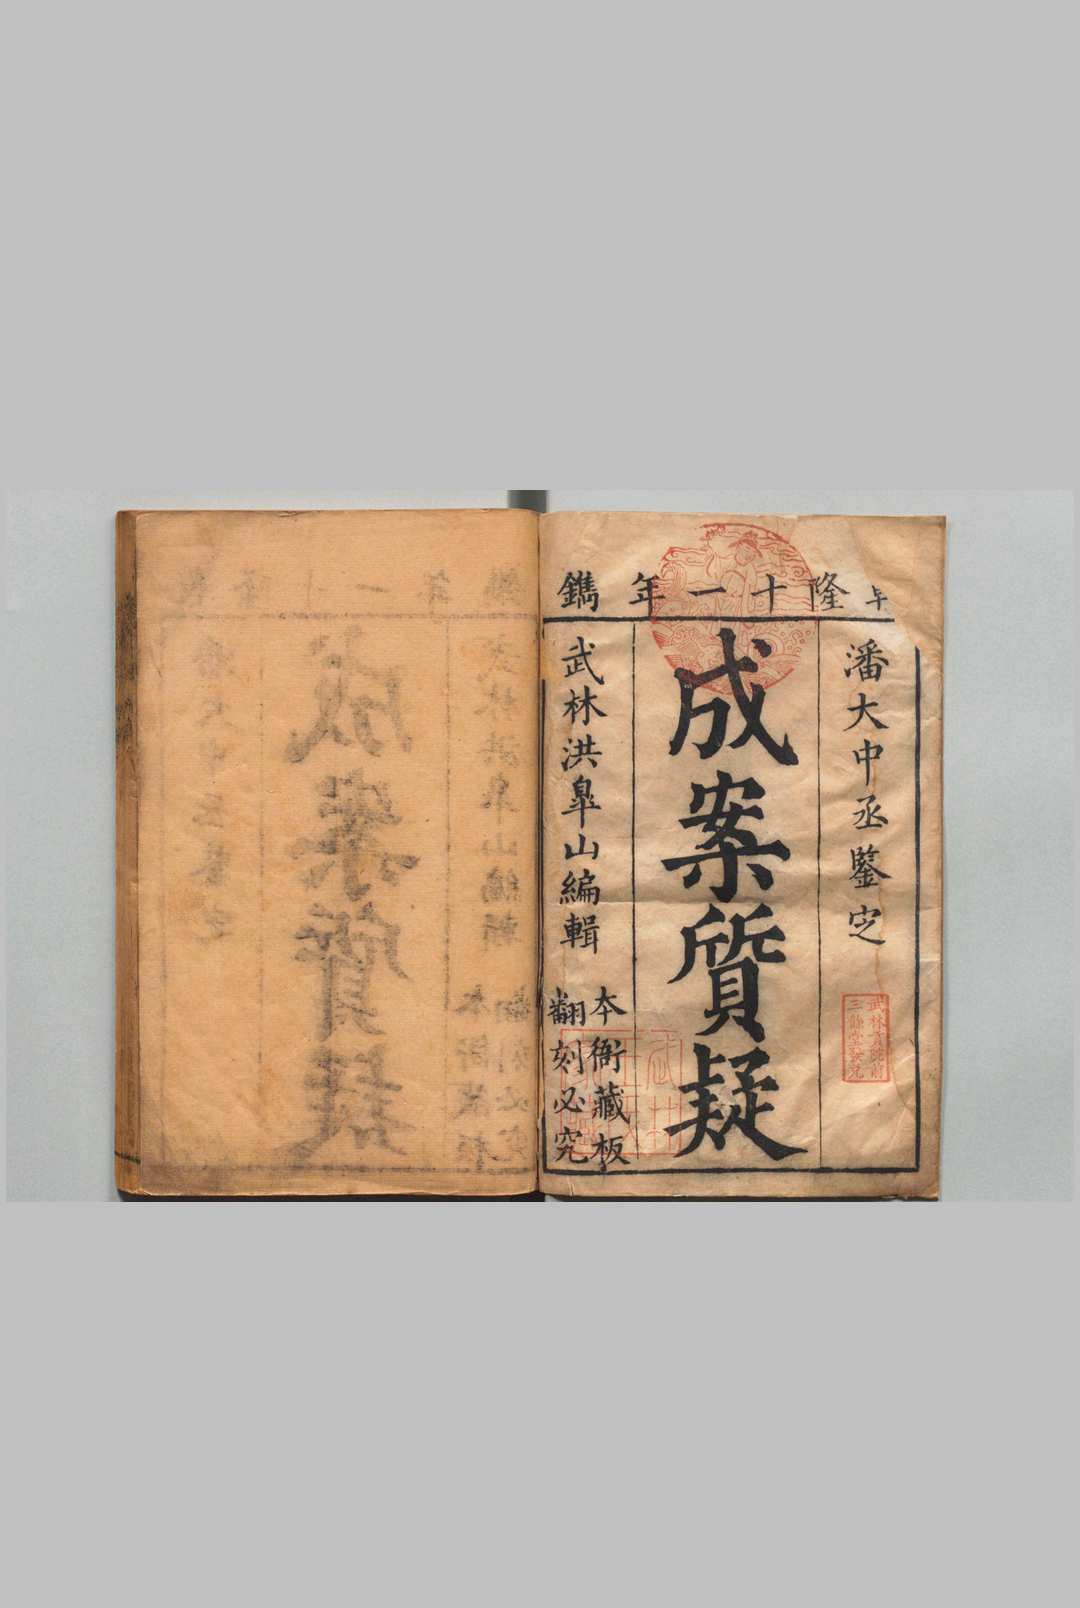 隆十一年鐫
潘大中丞鑒定
成案質疑
武林洪皐山編輯
本衙藏板
翻刻必究
三餘堂發兌